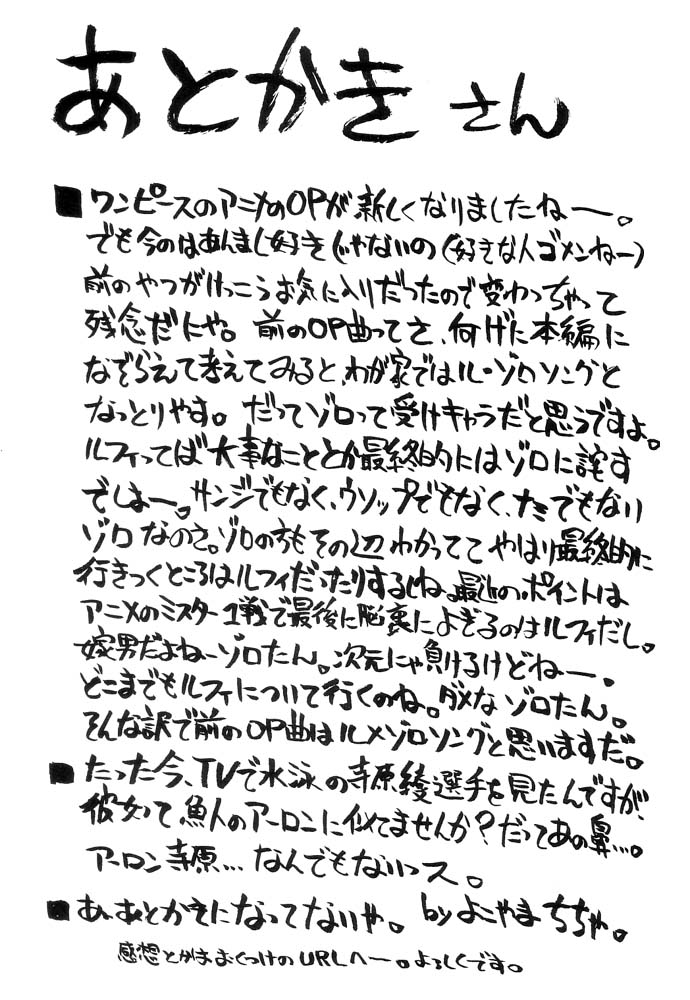 あとかき さん
■ワンピースのアニメのOPが新しくなりましたねー。
でも今のはあんまし好きじゃないの(好きな人ゴメンねー)
前のやつがけっこうお気に入りだったので変わっちゃって
残念だにゃ。前のOP曲ってさ、何げに本編に
なぞらえて考えてみると、わが家ではル・ゾロソングと
なっとりやす。だってゾロって受けキャラだと思うですよ。
ルフィってば大事なこととか最終的にはゾロに託す
でしょー。サンジでもなく、ウソップでもなく、ナミでもない
ゾロなのさ。ゾロの方もその辺わかってて やはり最終的に
行きつくところはルフィだったりするしね。最近のポイントは
アニメのミスター1戦で最後に脳裏によぎるのはルフィだし。
嫁男だよねーゾロたん。次元にゃ負けるけどねー。
どこまでもルフィについて行くのね。ダメなゾロたん。
そんな訳で前のOP曲はル×ゾロソングと思いますだ。
■たった今、TVで水泳の寺原綾選手を見たんですが、
彼女って魚人のアーロンに似てませんか?だってあの鼻…。
アーロン寺原…なんでもないっス。
■あ、あとかきになってないや。byよこやまちちゃ。
感想とかはおくつけのURLへー。よろしくです。